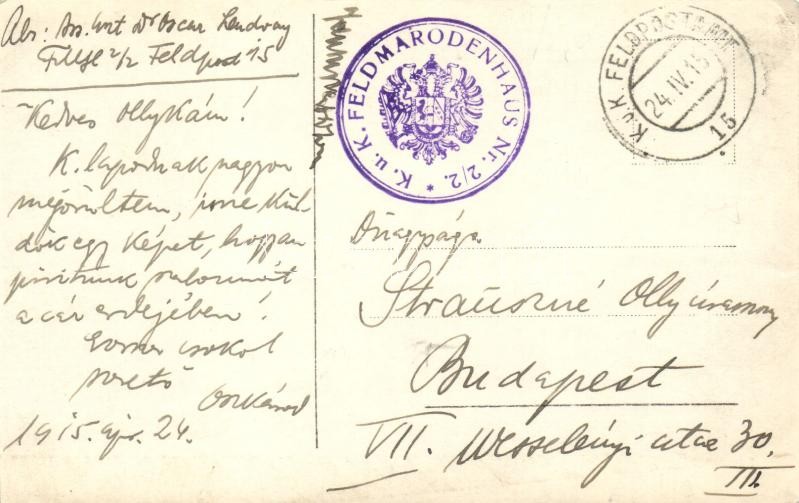 Abs: Ass. Arzt Dr Oscar Lendvay
2/2 Feldpost 15
Kedves Ollykám!
K. lapodnak nagyon
megörültem, ime kül-
dök egy képet, hogyan
pirítunk szalonnát
a cár erdejében!
csókol
szerető
Oszkárod
1915. ápr. 24.
K. u. K. FELDMARODENHAUS Nr. 2/2. *
K.u.K. FELDPOSTAMT
24.IV.15
15
Őnagysága
Strauszné Olly úrasszony
Budapest
VII. Wesselényi utca 30.
III.